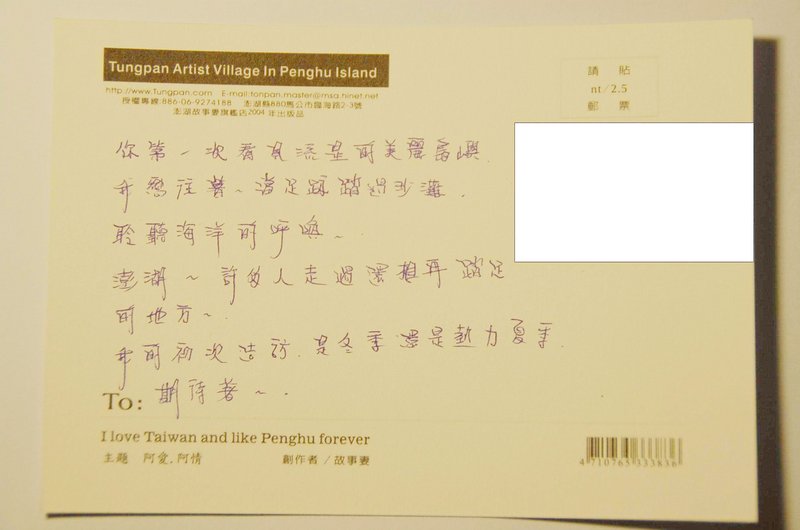 Tungpan Artist Village In Penghu Island
http://www.Tungpan.com E-mail:tonpan.master@msa.hinet.net
授權專線:886-06-9274188 澎湖縣880馬公市臨海路2-3號
澎湖故事妻旗艦店2004年出版品
請貼
nt/2.5
郵票
你第一次看見這是所美麗島嶼.
我嚮往著~當足跡踏過沙灘.
聆聽海洋的呼喚~.
澎湖~許多人走過還想再踏足
的地方~.
我的初次造訪.是冬季還是熱力夏季.
To: 期待著~.
I love Taiwan and like Penghu forever
主題 阿愛.阿情 創作者/故事妻
4710765333836